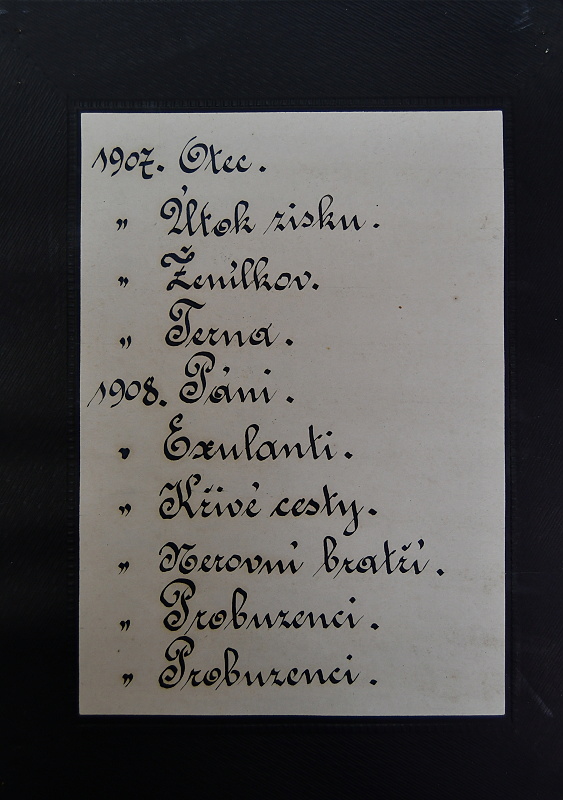 1907. Otec.
„ Útok zisku.
„ Ženílkov.
„ Terna.
1908. Páni.
„ Exulanti.
„ Křivé cesty.
„ Nerovní bratří.
„ Probuzenci.
„ Probuzenci.